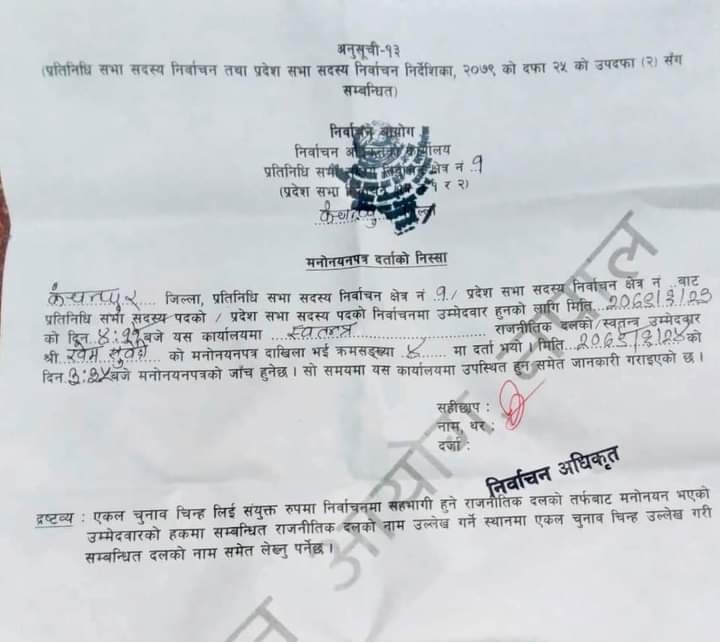 अनुसूची-१३
(प्रतिनिधि सभा सदस्य निर्वाचन तथा प्रदेश सभा सदस्य निर्वाचन निर्देशिका, २०७९ को दफा २५ को उपदफा (२) सँग
सम्बन्धित)
निर्वाचन आयोग
निर्वाचन अधिकृतको कार्यालय
प्रतिनिधि सभा निर्वाचन क्षेत्र नं. १
(प्रदेश सभा १ र २)
कंचनपुर
मनोनयनपत्र दर्ताको निस्सा
कंचनपुर जिल्ला, प्रतिनिधि सभा सदस्य निर्वाचन क्षेत्र नं. १ / प्रदेश सभा सदस्य निर्वाचन क्षेत्र नं. ...बाट
प्रतिनिधि सभा सदस्य पदको / प्रदेश सभा सदस्य पदको निर्वाचनमा उम्मेदवार हुनको लागि मिति
को दिन बजे यस कार्यालयमा स्वतन्त्र राजनीतिक दलको/स्वतन्त्र उम्मेदवार
श्री को मनोनयनपत्र दाखिला भई क्रमसङ्ख्या मा दर्ता भयो। मिति को
दिन बजे मनोनयनपत्रको जाँच हुनेछ। सो समयमा यस कार्यालयमा उपस्थित हुन समेत जानकारी गराइएको छ।
सहीछाप :
नाम, थर :
दर्जा :
निर्वाचन अधिकृत
द्रष्टव्य : एकल चुनाव चिन्ह लिई संयुक्त रुपमा निर्वाचनमा सहभागी हुने राजनीतिक दलको तर्फबाट मनोनयन भएको
उम्मेदवारको हकमा सम्बन्धित राजनीतिक दलको नाम उल्लेख गर्ने स्थानमा एकल चुनाव चिन्ह उल्लेख गरी
सम्बन्धित दलको नाम समेत लेख्नु पर्नेछ।
न आयोग, नेपाल